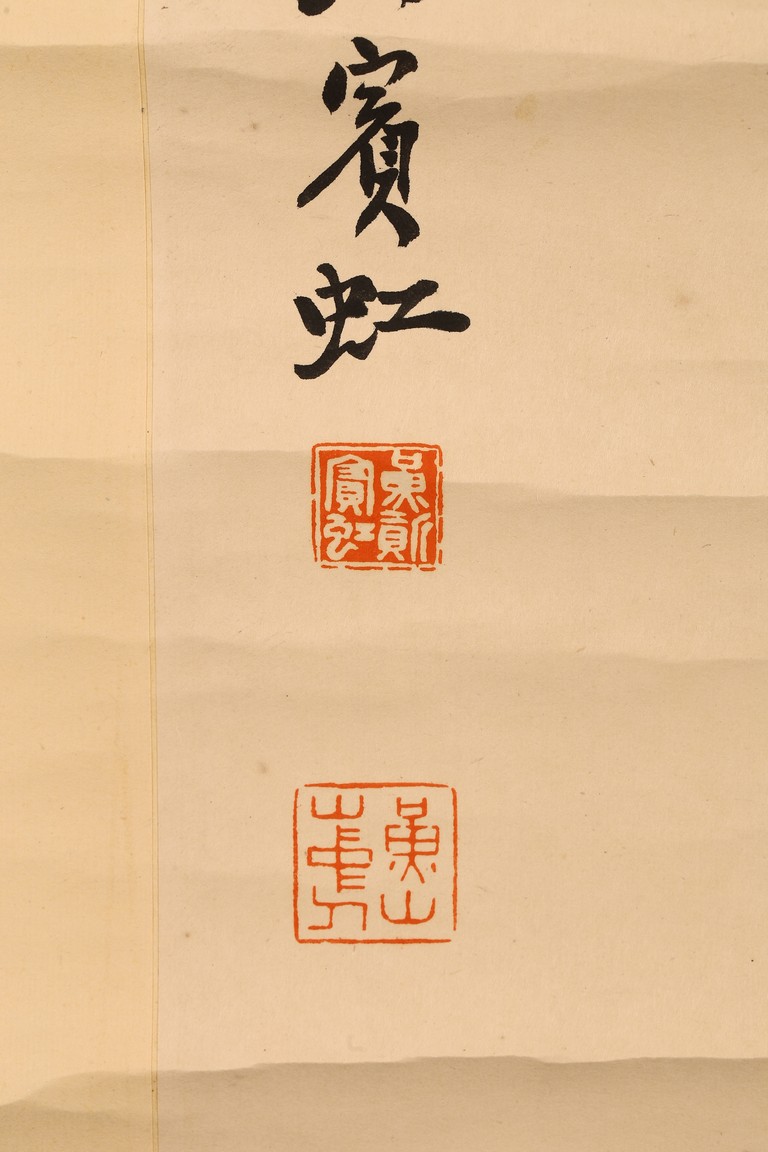 賓虹
黃質
賓虹
黃山
山中人